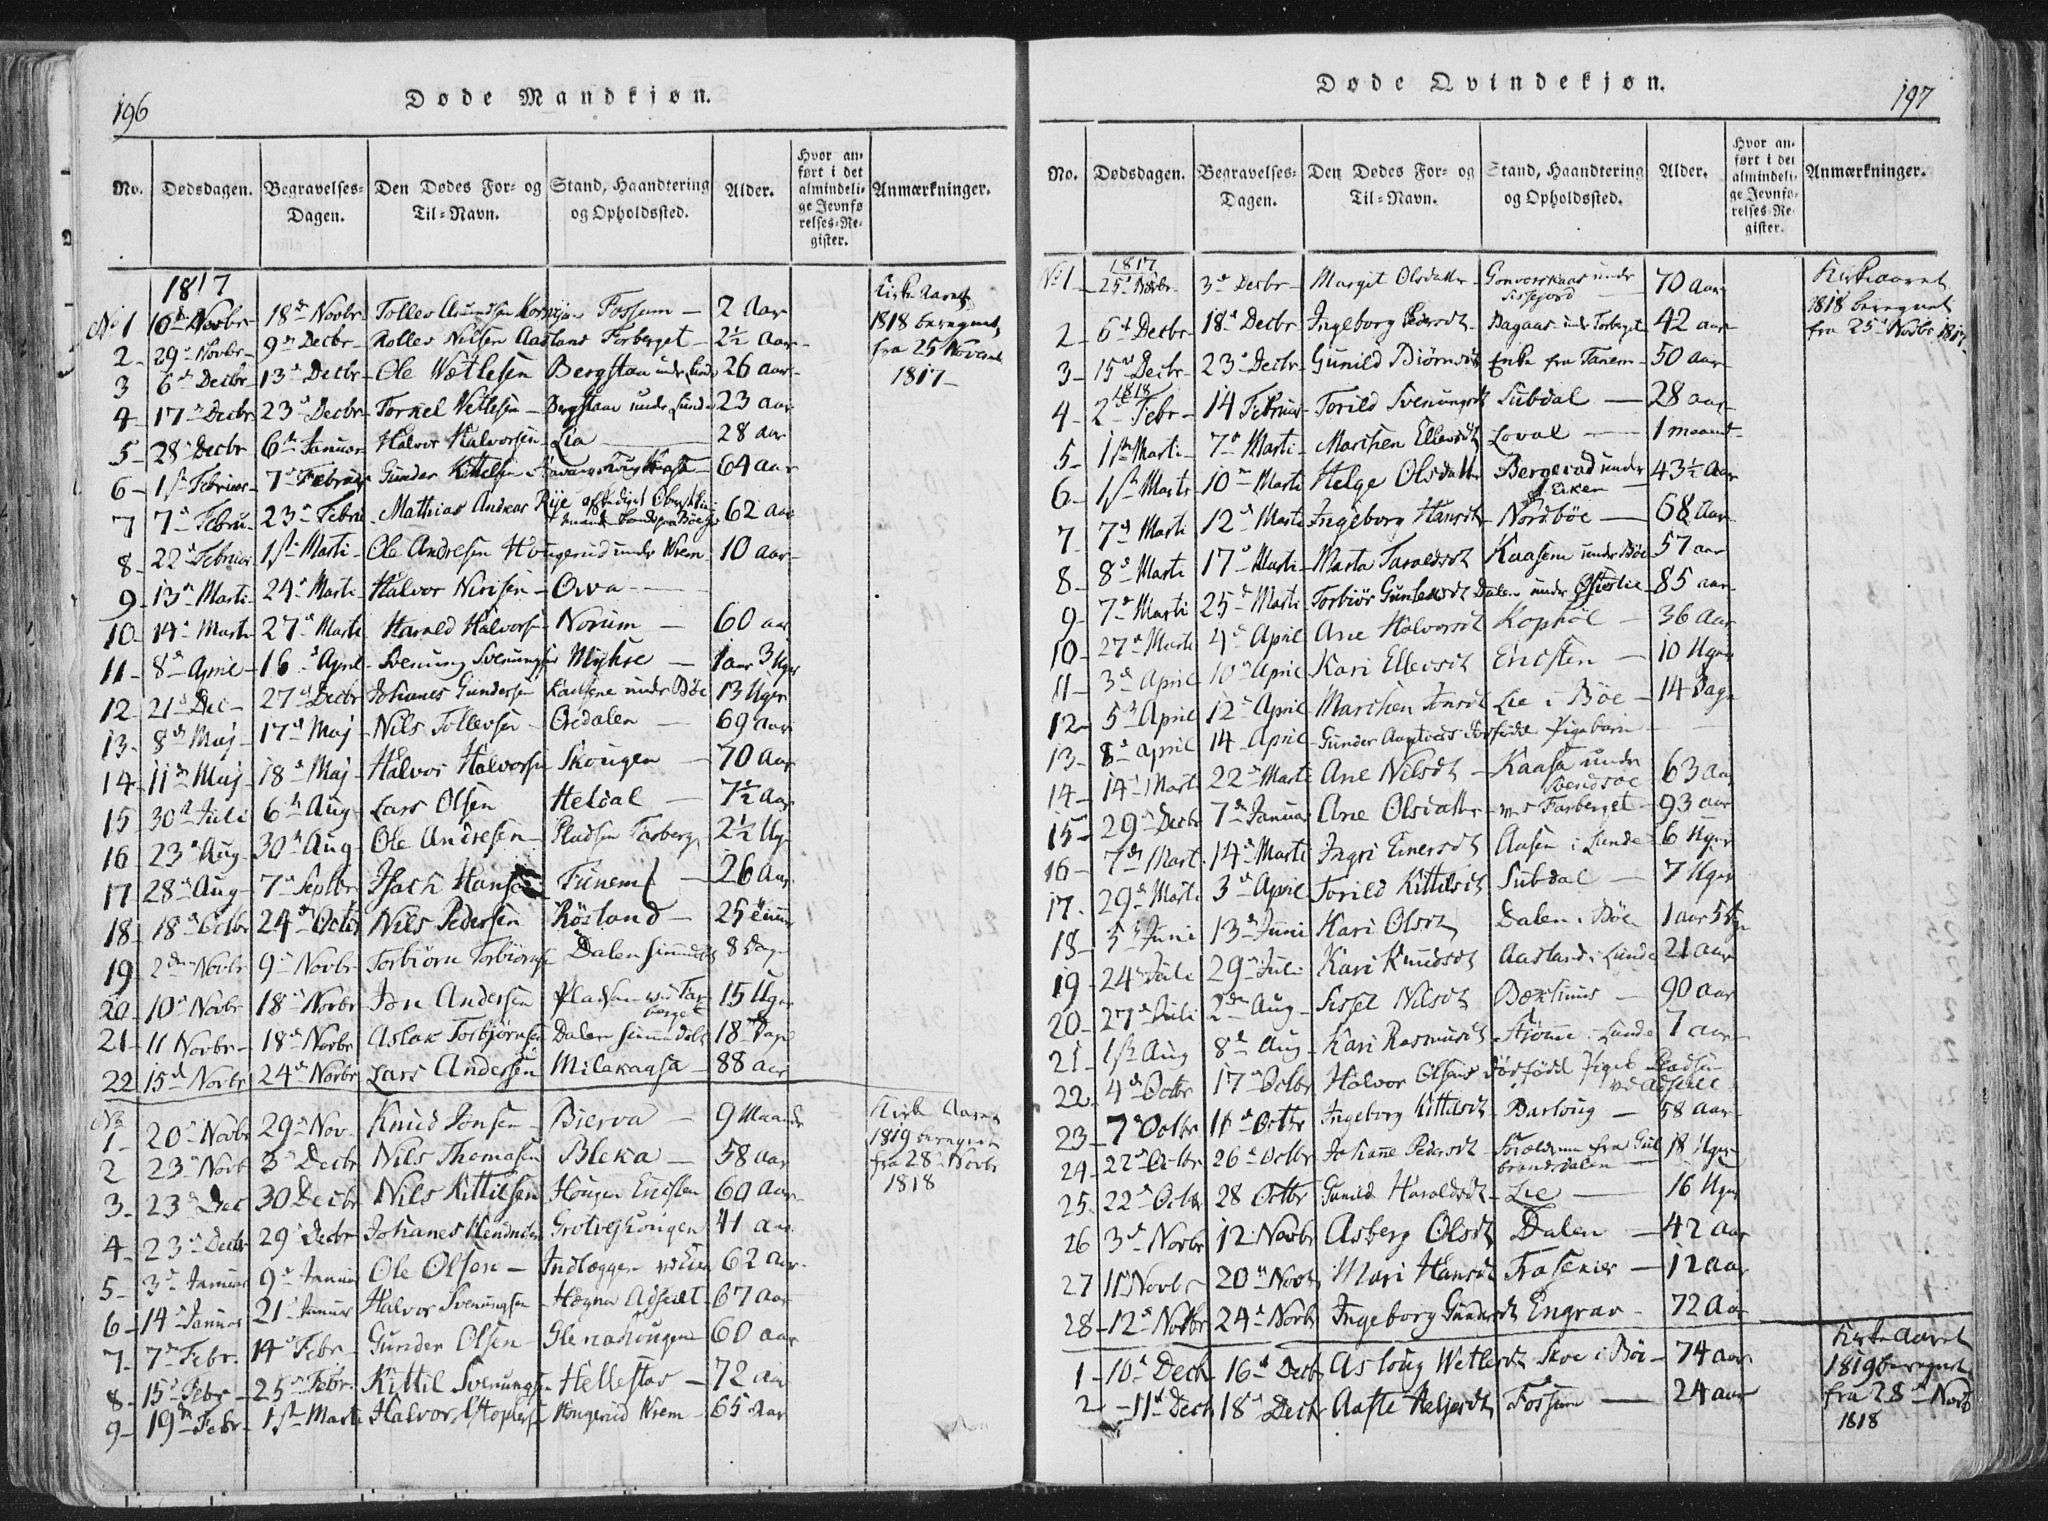 196
Døde Mandkjøn.
No. Dødsdagen. Begravelses-Dagen. Den Dødes For- og Til-Navn. Stand, Haandtering og Opholdssted. Alder. Hvor anført i det almindelige Jevnførelses-Register. Anmærkninger.
1817
No 1 16de Novbr 18de Novbr Tollev Fossum 2 Aar
Kirke Aaret
1818 beregnet
fra 25 Novemb
1817
2 29 Novbr 9de Decbr Nilsen Aasland Forberget 2½ Aar
3 6te Decbr 13 Decbr Ole Wetlesen Bergstaa under Lunde 26 aar
4 17 Decbr 23 Decbr Torkel Vetlesen Bergstaa under Lunde 23 aar
5 28 Decbr 6te Januar Halvor Halvorsen Lia 28 aar
6 1ste Februar 7de Februar Gunder Kittilsen 64 aar
7 7de Febru 23de Febru Mathias Andreas Rye 62 aar
8 22 Februar 1ste Marti Ole Andresen Hougerud under Wrem 10 aar
9 13 Marti 24 Marti Halvor Nirisen Orva
10 14 Marti 27 Marti Harald Halvors Norum 60 aar
11 8de April 16 April Svenung Svenungs Myhre 1 aar 3 Uger
12 21 Dec 27 Decbr Johanes Gundersen Kaasene under Bøe 13 Uger
13 8de Maj 17de Maj Nils Tollevsen Oredalen 69 aar
14 11 Maj 18 Maj Halvor Halvorsen Skougen 70 Aar
15 30te Juli 6te Aug Lars Olsen Heldal 7½ Aar
16 23 Aug 30 Aug Ole Andresen Pladsen Forberg 2½ Ug
17 28 Aug 7de Septbr Isach Hans Tunem 26 Aar
18 18 Octbr 24de Octbr Nils Pedersen Røsland 25
19 2den Novbr 9de Novbr Torbiørn Torbiørns Dalen 8 Dag
20 10 Novbr 18 Novbr Jon Andersen Pladsen 15 Uger
21 11 Novbr 18de Novbr Aslak Torbjørnsen Dalen 18 Dage
22 15de Novbr 24de Novbr Lars Andersen Milekaasa 88 aar
No
1 20 Novbr 29 Nov Knud Jonsen Bierva 9 Maande
Kirke Aaret
1819 beregnet
fra 28 Novbr
1818
2 23 Novb 3 Decbr Nils Thomasen Bleka 58 aar
3 23 Dec 30 Decbr Nils Kittilsen Hougen Ericsten 60 Aar
4 23 Decbr 29 Decbr Johanes Grotveghougen 41 aar
5 3 Januar 9de Januar Ole Olsen Indlæggen 62 Aar
6 14 Januar 21 Januar Halvor Svenungsen Hægna 67 Aar
7 7de Febr 14 Febr Gunder Olsen Glenahougen 60 aar
8 15 Febr 25 Febr Kittil Svenungsen Hellestad 72 aar
9 19de Febr 1ste Marti Halvor Hougerud Wrem 65 Aar
197
Døde Qvindekjøn.
No. Dødsdagen. Begravelses-Dagen. Den Dødes For- og Til-Navn. Stand, Haandtering og Opholdssted. Alder. Hvor anført i det almindelige Jevnførelses-Register. Anmærkninger.
1817
No 1 25 Novbr 3de Decbr Margit Olsdatter under 70 aar
Kirkeaaret
1818 beregnet
fra 25 Novbr 1817
2 6te Decbr 18 Decbr Ingeborg Pedersdt Bagaas under Forberget 42 aar
3 15 Decbr 23 Decbr Gunild Biørnsdt Enke fra Tanem 50 aar
1818
4 2 Febr 14 Februar Torild Svenungsdt Subdal 28 aar
5 1ste Marti 7de Marti Marthen Ellevsdt Loval 1 maaned
6 1ste Marti 10 Marti Helge Olsdatter Bergerud under Eiken 43½ Aar
7 7de Marti 12 Marti Ingeborg Hansdt Nordbøe 68 Aar
8 8 Marti 17 Marti Marta Taraldsdt Kaasene under Bøe 57 aar
9 7de Marti 25 Marti Torbiør Dalen under 85 aar
10 27 Marti 4de April Ane Halvorsdt Kophøl 36 Aar
11 3de April 10 April Kari Ellevsdt Ericsten 10 Uger
12 5te April 12 April Marthen Jonsdt Lie i Bøe 14 Dage
13 8 april 14 April Gunder dødfødde Pigebarn
14 14 Marti 22 Marti Ane Nilsdt Kaasa under 63 aar
15 29 Decbr 7de Januar Ane Olsdatter Farberget 93 aar
16 7de Mart 14de Marti Ingri Einersdt Aasen i Lunde 6 Uger
17 29de Marti 3de April Torild Kittilsdt Subdal 7 Uger
18 5te Juni 13de Juni Kari Olsdt Dalen i Bøe 1 aar 5
19 24 Juli 29 Juli Kari Knudsdt Aasland i Lunde 21 aar
20 27de Juli 2den Aug Sissel Nilsdt 90 aar
21 1ste Aug 8de Aug Kari Rasmusdt i Lunde 7 aar
22 4de Octbr 17 Octbr Halvor Olsens dødfødde Pigeb Pladsen
23 7 Octbr 11 Octbr Ingeborg Kittilsdt Barloug 58 aar
24 22 Octbr 26 Octbr Johanne Pedersdt fra Gulbrandsdalen 18 Uger
25 22 Octbr 28 Octbr Gunild Haraldsdt Lie 16 Uger
26 3de Novbr 12 Novbr Asberg Olsdt Dalen 42 Aar
27 11 Novbr 20 Novb Mari Hansdt 12 aar
28 12 Novbr 24 Novbr Ingeborg Gundersdt Engrav 72 Aar
Kirkeaaret
1819 beregnet
fra 28 Novb
1818
1 10 Decb 16 Decb Asloug Wetlesdt Skoe i Bøe 74 aar
2 11 Decb 18 Decb Aaste Fossum 24 aar